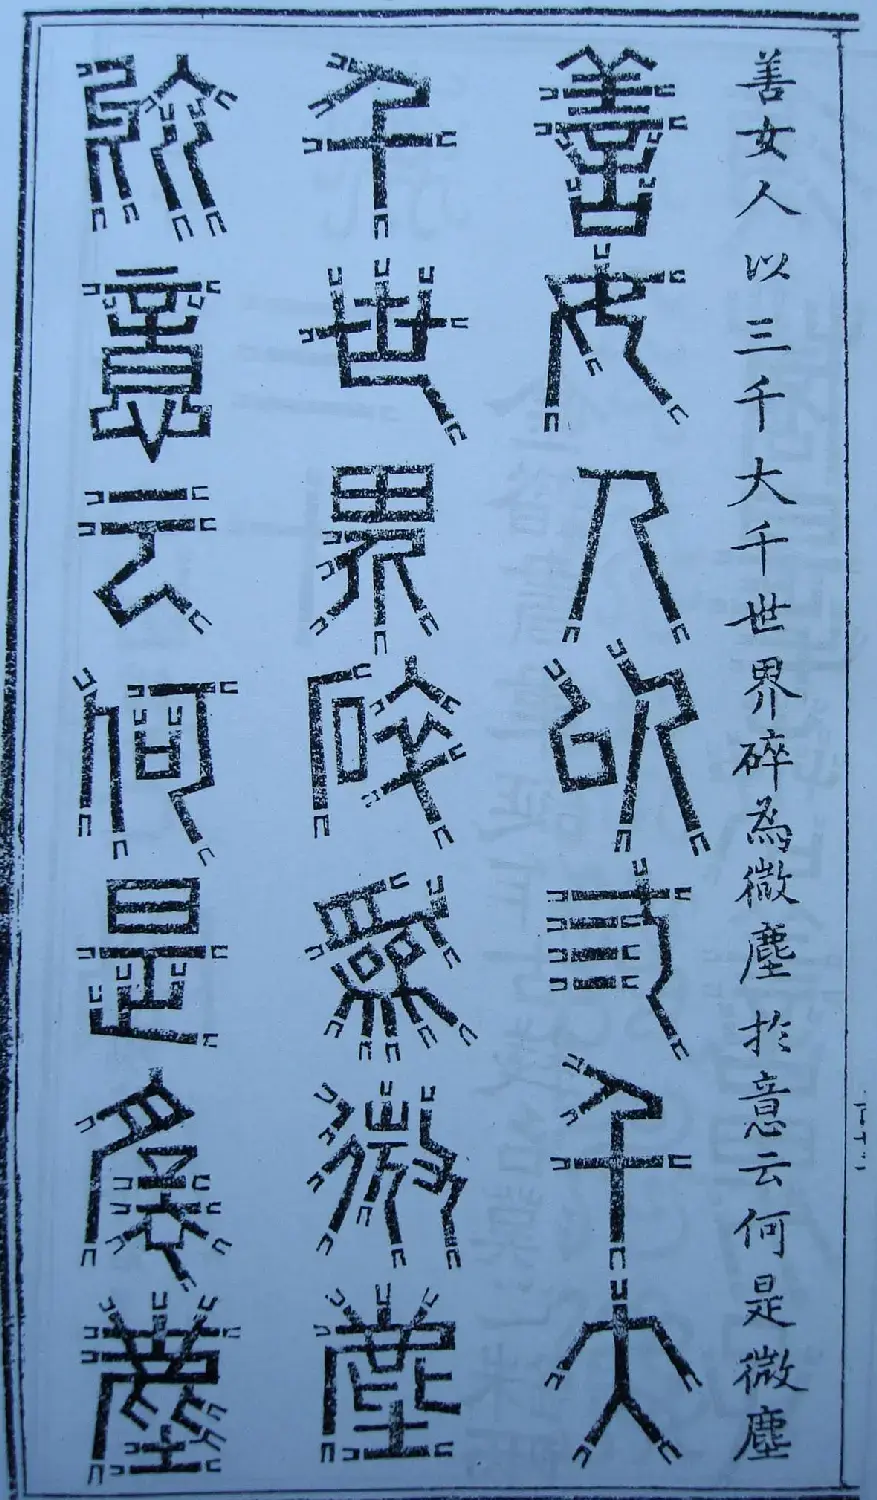 善女人以三千大千世界碎為微塵扵意云何是微塵
善女人以三千大
千世界碎為微塵
於意云何是微塵